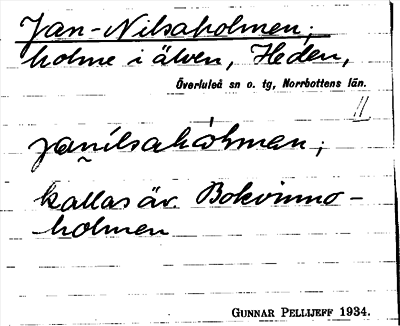 Jan-Nilsaholmen;
holme i älven, Heden,
Överluleå sn o. tg, Norrbottens län.
11
kallas äv. Bokvinno-
holmen
GUNNAR PELLIJEFF 1934.